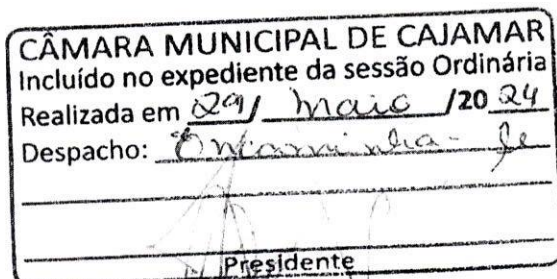 CÂMARA MUNICIPAL DE CAJAMAR
Incluído no expediente da sessão Ordinária
Realizada em 29/ maio /20 24
Despacho: Encaminha-se
Presidente